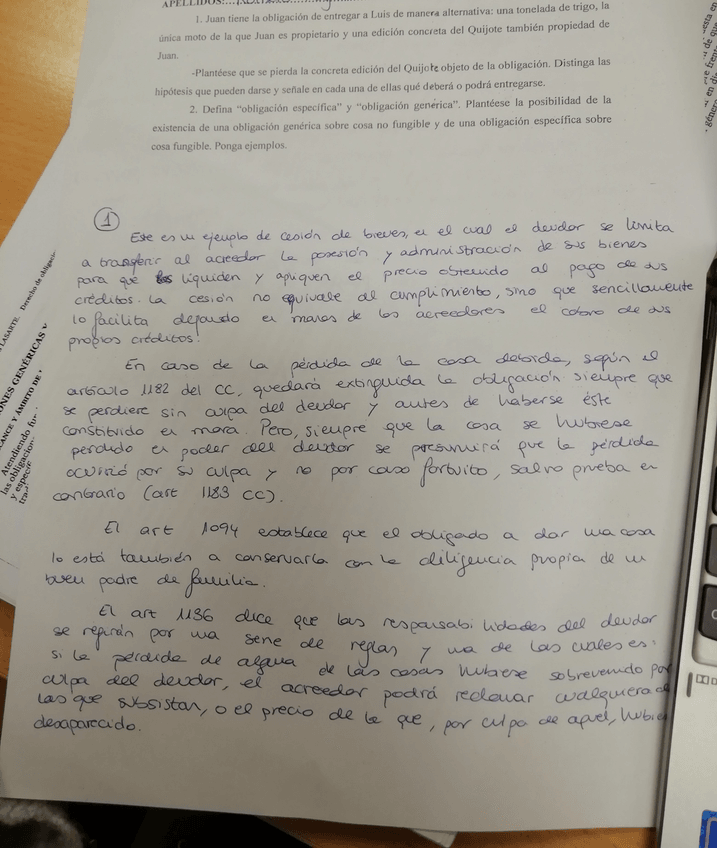 APELLIDOS:
1. Juan tiene la obligación de entregar a Luis de manera alternativa: una tonelada de trigo, la
única moto de la que Juan es propietario y una edición concreta del Quijote también propiedad de
Juan.
-Plantéese que se pierda la concreta edición del Quijote objeto de la obligación. Distinga las
hipótesis que pueden darse y señale en cada una de ellas qué deberá o podrá entregarse.
2. Defina "obligación específica" y "obligación genérica". Plantéese la posibilidad de la
existencia de una obligación genérica sobre cosa no fungible y de una obligación específica sobre
cosa fungible. Ponga ejemplos.
1
Este es un ejemplo de cesión de bienes, en el cual el deudor se limita
a transferir al acreedor la posesión y administración de sus bienes
para que los liquiden y apliquen el precio obtenido al pago de sus
créditos. La cesión no equivale al cumplimiento, sino que sencillamente
lo facilita dejando en manos de los acreedores el cobro de sus
propios créditos.
En caso de la pérdida de la cosa debida, según el
artículo 1182 del CC, quedará extinguida la obligación siempre que
se perdiere sin culpa del deudor y antes de haberse éste
constituido en mora. Pero, siempre que la cosa se hubiese
perdido en poder del deudor se presumirá que la pérdida
ocurrió por su culpa y no por caso fortuito, salvo prueba en
contrario (art 1183 CC).
El art 1094 establece que el obligado a dar una cosa
lo está también a conservarla con la diligencia propia de un
buen padre de familia.
El art 1136 dice que las responsabilidades del deudor
se regirán por una serie de reglas y una de las cuales es:
si la pérdida de alguna de las cosas hubiese sobrevenido por
culpa del deudor, el acreedor podrá reclamar cualquiera de
las que subsistan, o el precio de la que, por culpa de aquel, hubie
desaparecido.
LASARTE: Derecho de obligac
ONES GENÉRICAS Y
ANCE Y ÁMBITO DE
Atendiendo
las obligacion
y especí